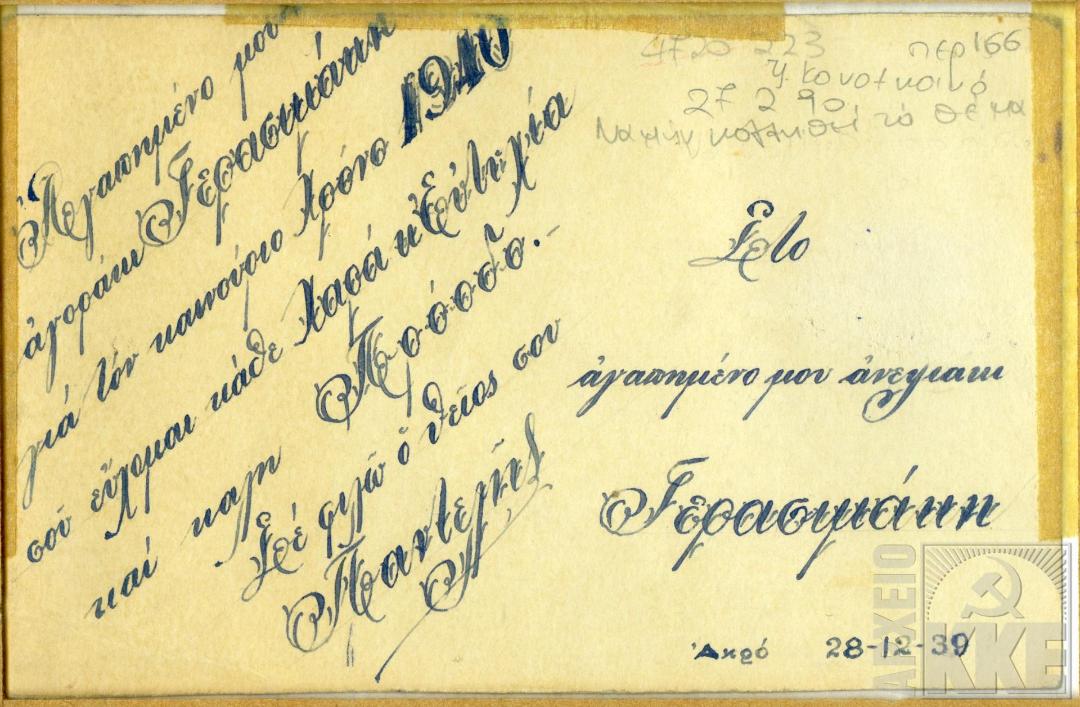 Ἀγαπημένο μου
ἀγοράκι Γερασιμάκη
γιά τόν καινούριο Χρόνο 1940
σοῦ εὔχομαι κάθε Χαρά κ Εὐτυχία
καί καλή Πρόοδο.-
Σέ φιλῶ ὁ θεῖος σου
Παντελῆς
4720 223 περ 166
27 2 90
Στο
ἀγαπημένο μου ἀνεψιάκι
Γερασιμάκη
Ἀκρό 28-12-39
ΑΡΧΕΙΟ
ΚΚΕ